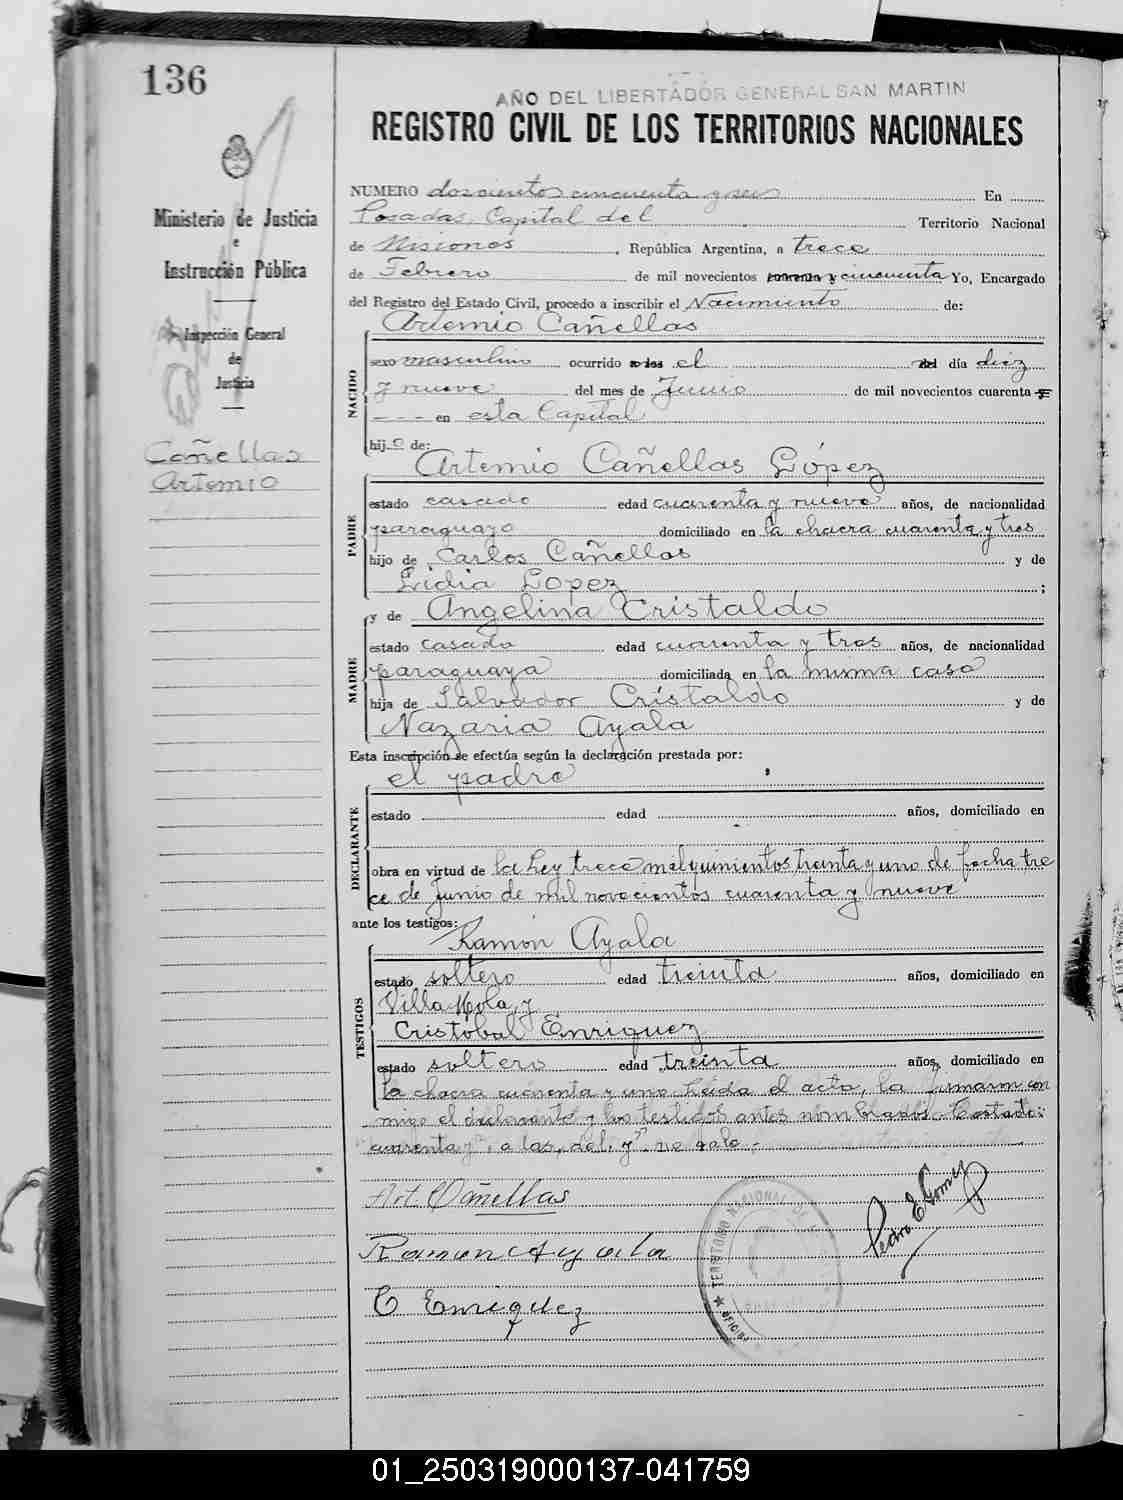 136
AÑO DEL LIBERTADOR GENERAL SAN MARTIN
REGISTRO CIVIL DE LOS TERRITORIOS NACIONALES
Ministerio de Justicia
e
Instrucción Pública
Inspección General
de
Justicia
Cañellas
Artemio
NUMERO doscientos cincuenta y seis En
Posadas, Capital del Territorio Nacional
de Misiones, República Argentina, a trece
de Febrero de mil novecientos cuarenta y cincuenta Yo, Encargado
del Registro del Estado Civil, procedo a inscribir el Nacimiento de:
Artemio Cañellas
NACIDO
sexo masculino ocurrido a las el del día diez
y nueve del mes de Junio de mil novecientos cuarenta y
- - - en esta Capital
hijo de:
Artemio Cañellas López
PADRE
estado casado edad cuarenta y nueve años, de nacionalidad
paraguayo domiciliado en la chacra cuarenta y tres
hijo de Carlos Cañellas y de
Lidia Lopez ;
y de Angelina Cristaldo
MADRE
estado casada edad cuarenta y tres años, de nacionalidad
paraguaya domiciliada en la misma casa
hija de Salvador Cristaldo y de
Nazaria Ayala
Esta inscripción se efectúa según la declaración prestada por:
el padre
DECLARANTE
estado edad años, domiciliado en
obra en virtud de la Ley trece mil quinientos treinta y uno de fecha tre
ce de Junio de mil novecientos cuarenta y nueve
ante los testigos:
Ramón Ayala
TESTIGOS
estado soltero edad treinta años, domiciliado en
Villa Mola y
Cristobal Enriquez
estado soltero edad treinta años, domiciliado en
la chacra cuarenta y uno Leida el acta, la firmaron con
migo el declarante y los testigos antes nombrados. Testado:
"cuarenta y", a las, del, y" no vale.
Art. Cañellas
Ramon Ayala
C Enriquez
Pedro E. Gomez
TERRITORIO NACIONAL DE
01_250319000137-041759